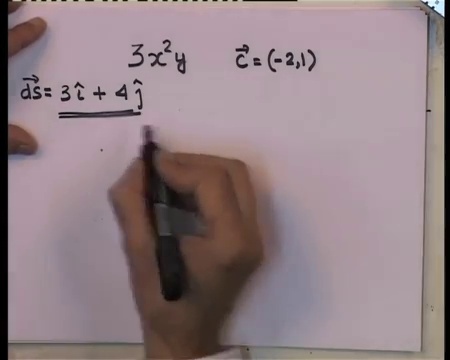 3x²y
c⃗ = (-2,1)
d⃗s = 3î + 4ĵ